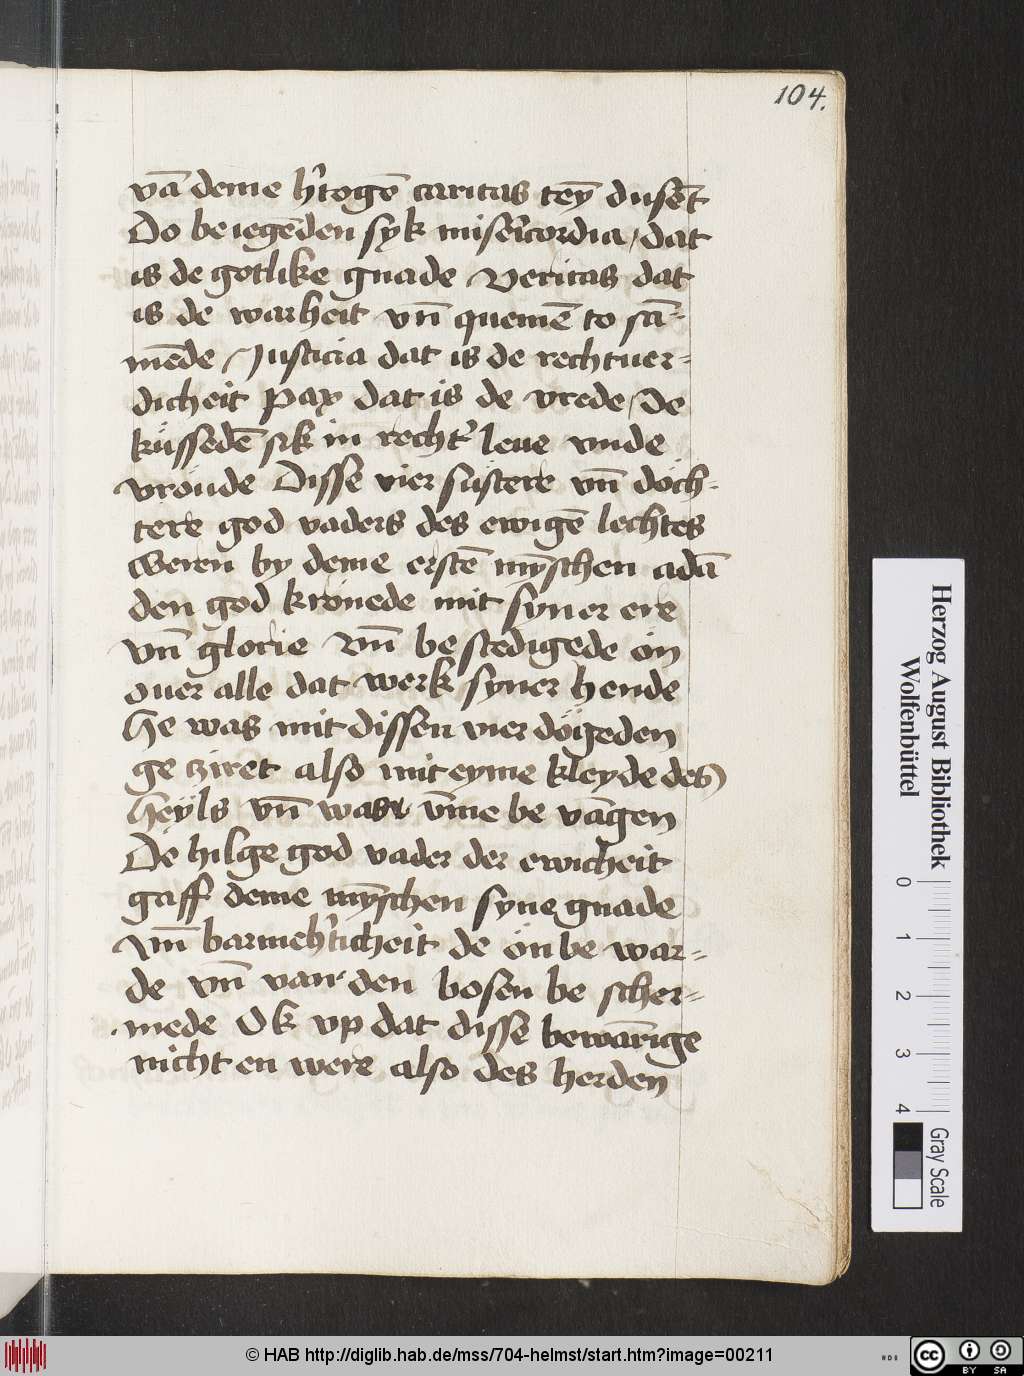 104.
vā deme h'togē caritas teȳ dusēt
Do beiegēden syk misericordia, dat
is de gotlike gnade Veritas dat
is de warheit vn̄ quemē to sā-
mēde Justicia dat is de rechtuer-
dicheit Pax dat is de vrede, De
küssedē sik in recht' leue vnde
vröude Disse vier süstere vn̄ döch-
tere god vaders des ewigē lechtes
Weren by deme erstē mȳschen adā
den god krönede mit syner ere
vn̄ glorie vn̄ be stedigede ön
ouer alle dat werk syner hende
He was mit dissen vier dögeden
ge ziret also mit eyme kleyde des
heÿls vn̄ was v̄me be vāgen
De hilge god vader der ewicheit
gaff deme mȳschen syne gnade
vn̄ barmeh'ticheit de ön be war-
de vn̄ van den bosen be scher-
mede Ok vp dat disse bewārīge
nicht en were also des herden
Herzog August Bibliothek
Wolfenbüttel
0 1 2 3 4
Gray Scale
© HAB http://diglib.hab.de/mss/704-helmst/start.htm?image=00211
cc
BY SA